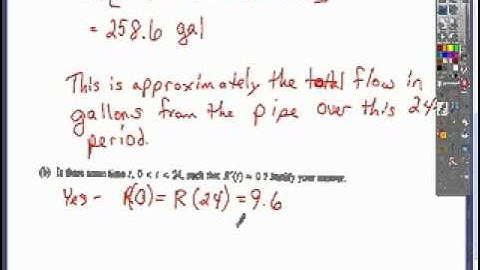 = 258.6 gal
This is approximately the total flow in
gallons from the pipe over this 24-
period.
(b) Is there some time t, 0 < t < 24, such that R'(t) = 0 ? Justify your answer.
Yes - R(0) = R(24) = 9.6